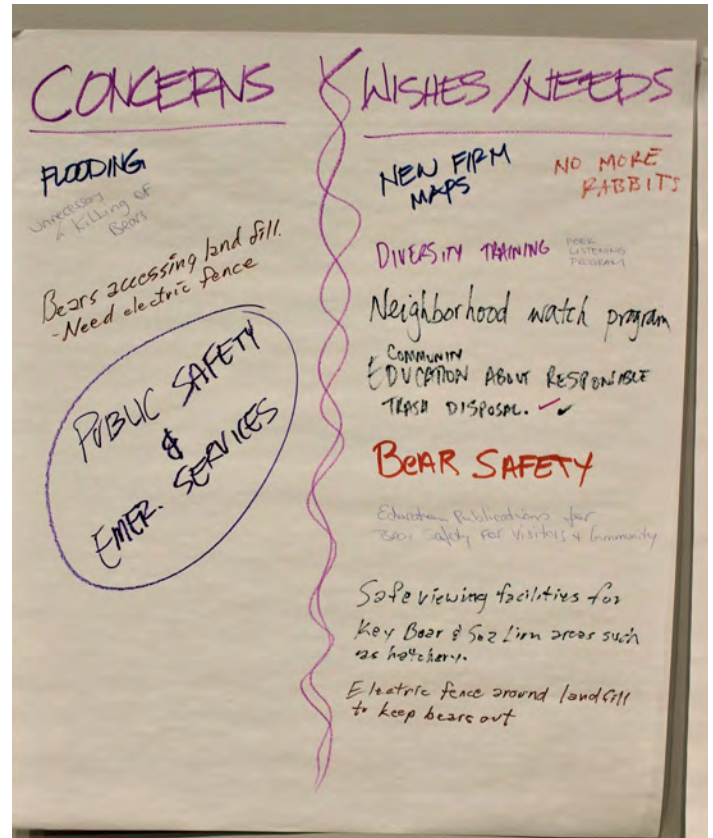 CONCERNS
FLOODING
Unnecessary
Killing of
Bears
Bears accessing land fill.
-Need electric fence
PUBLIC SAFETY
&
EMER. SERVICES
WISHES/NEEDS
NEW FIRM
MAPS
NO MORE
RABBITS
DIVERSITY TRAINING
PEER
LISTENING
PROGRAM
Neighborhood watch program
COMMUNITY
EDUCATION ABOUT RESPONSIBLE
TRASH DISPOSAL. ✓✓
BEAR SAFETY
Education Publications for
Bear Safety For Visitors & Community
Safe viewing facilities for
Key Bear & Sea Lion areas such
as hatchery.
Electric fence around landfill
to keep bears out